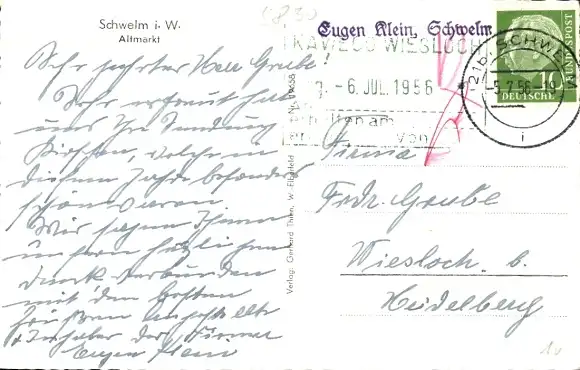 Schwelm i. W.
Altmarkt
Sehr geehrter Herr Grube!
Sehr erfreut hat
uns Ihre Sendung
Kirschen, welche in
diesem Jahre besonders
schön waren.
Wir sagen Ihnen
unsern herzlichen
Dank verbunden
mit den besten
Grüssen Angestellte
u. Inhaber der Firma
Eugen Klein
Verlag: Gerhard Thien, W.-Elberfeld
Nr. 19658
Eugen Klein, Schwelm
KAWECO WIESLOCH
- 6. JUL. 1956
Erhalten am
von
SCHWELM
-5.7.56.-19
10
DEUTSCHE
BUNDESPOST
Firma
Fedr. Grube
Wiesloch b.
Heidelberg